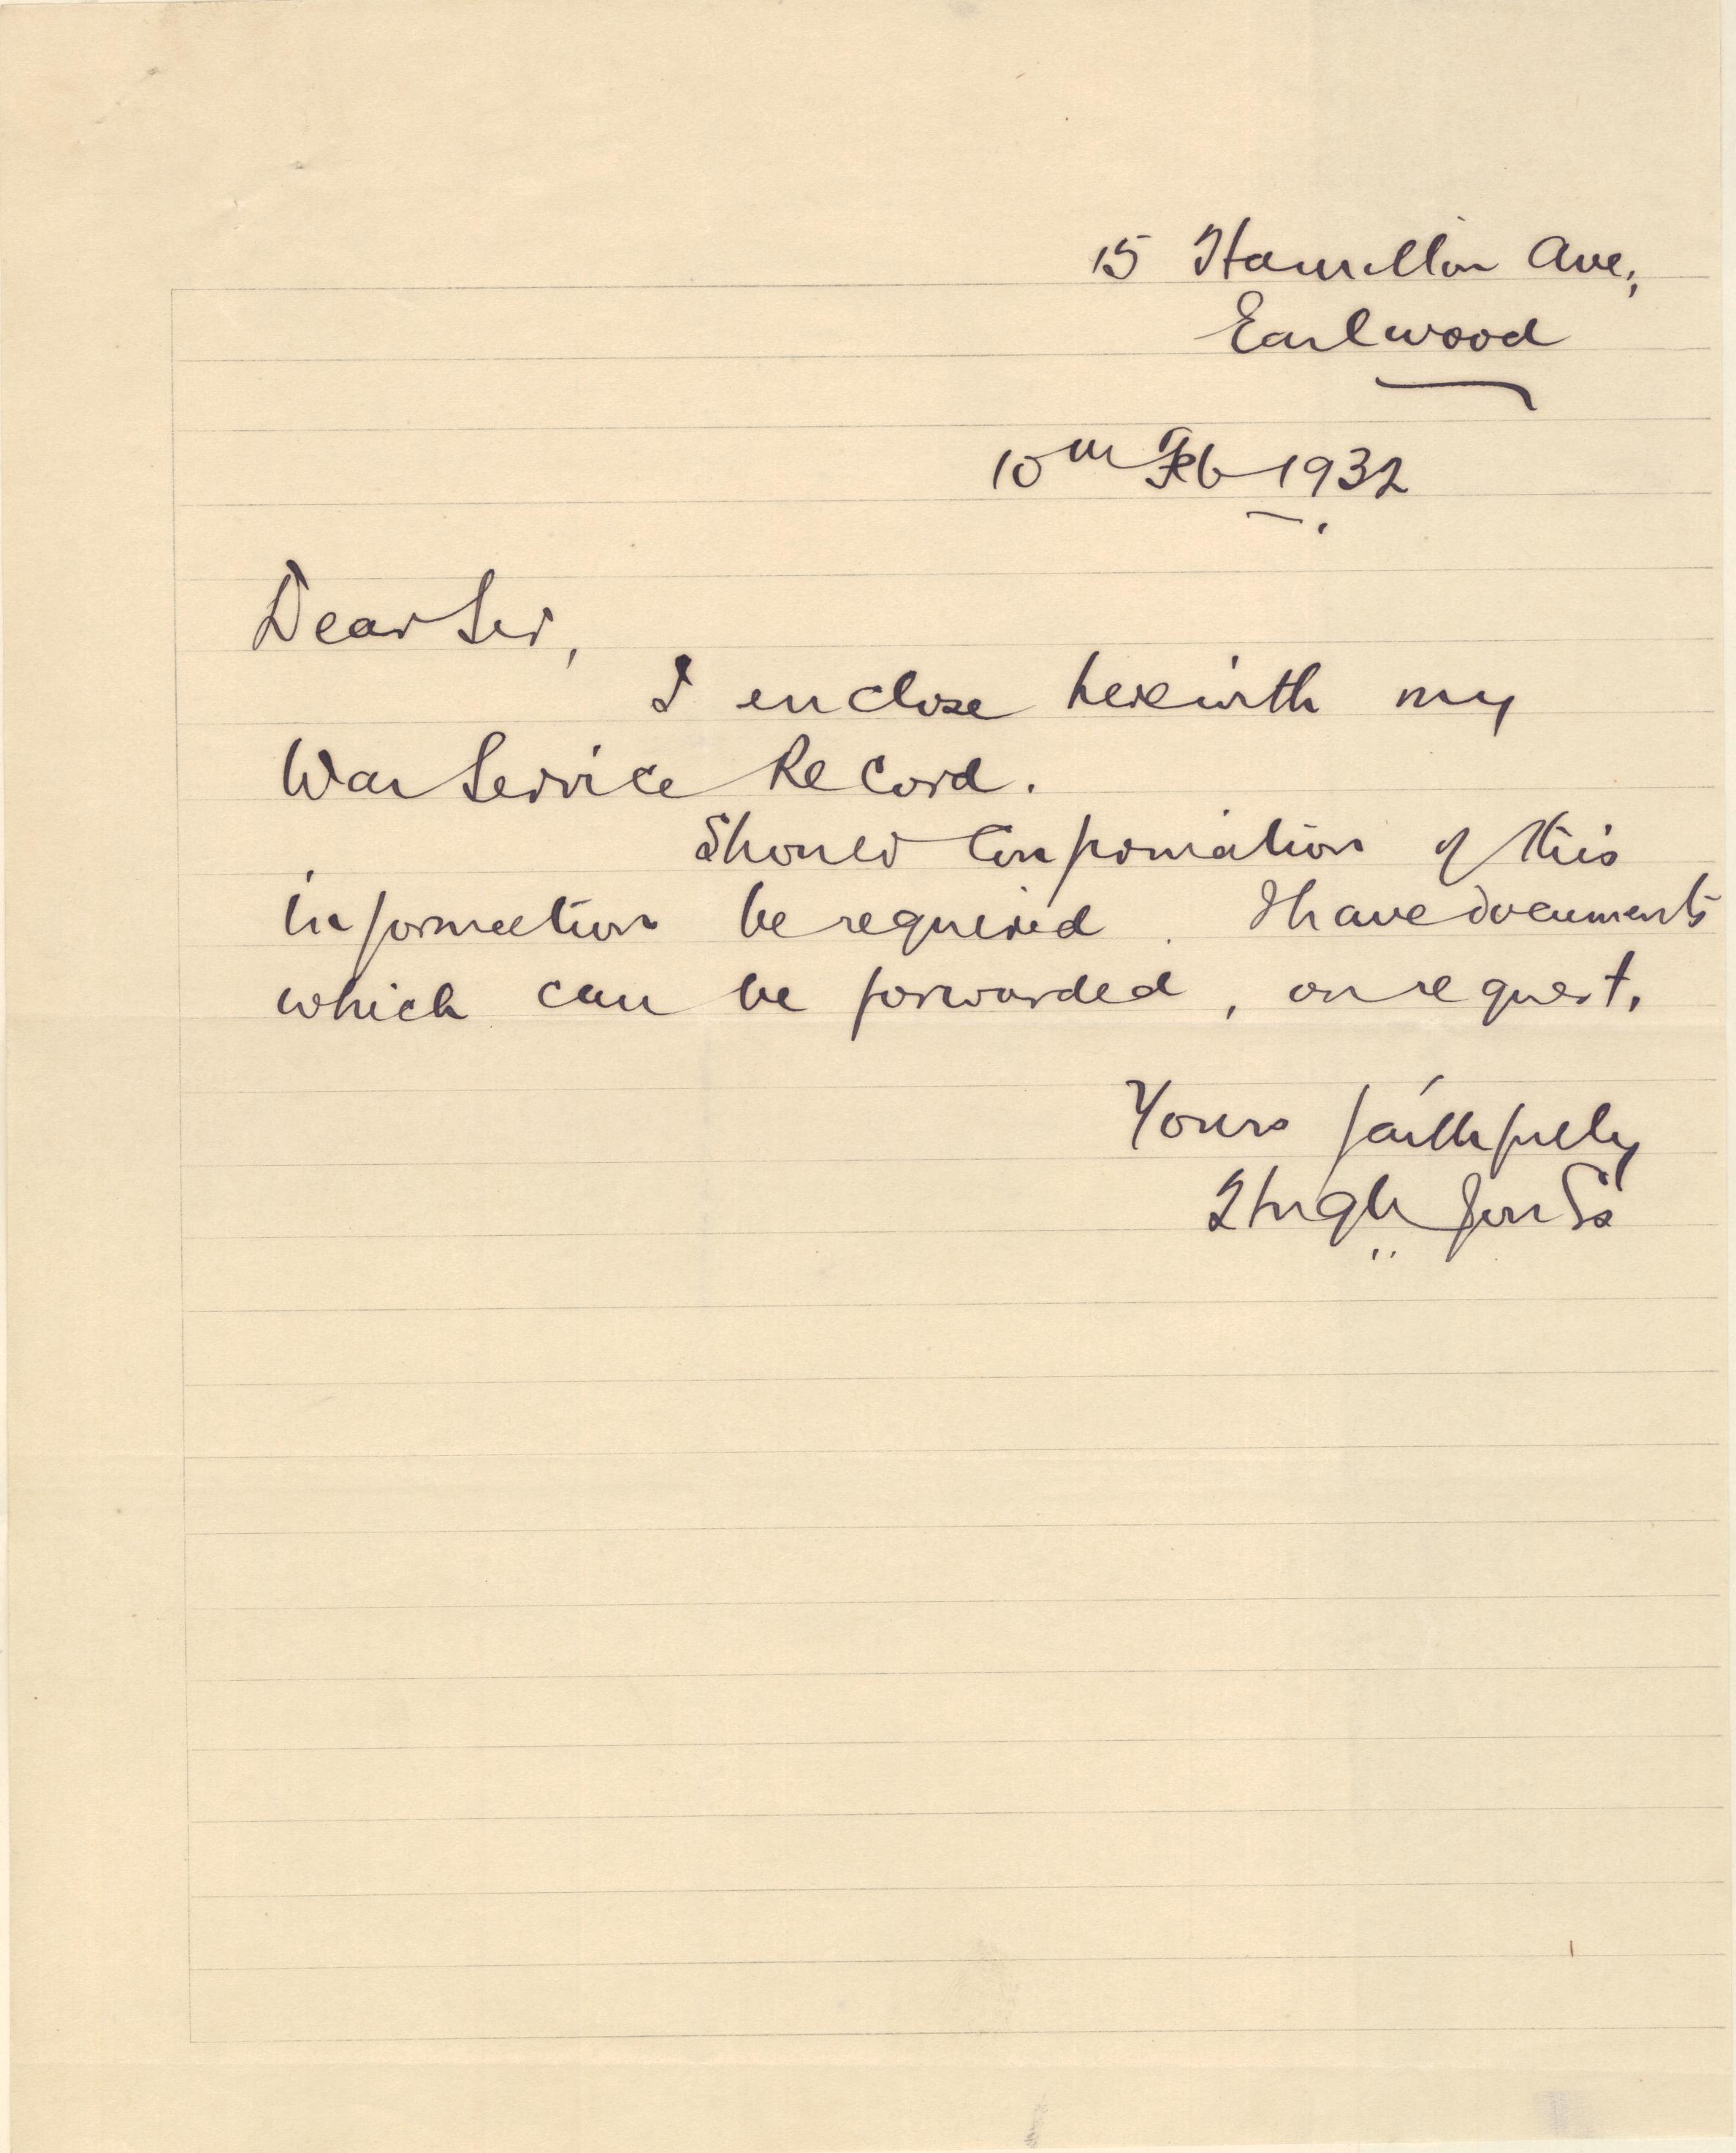 15 Hamilton Ave,
Earlwood
10th Feb 1932
Dear Sir,
I enclose herewith my
War Service Record.
Should Confirmation of this
information be required. I have documents
which can be forwarded, on request.
Yours faithfully
Hugh